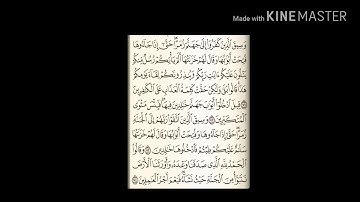 Made with KINEMASTER
وَسِيقَ الَّذِينَ كَفَرُوا إِلَىٰ جَهَنَّمَ زُمَرًا حَتَّىٰ إِذَا جَاءُوهَا
فُتِحَتْ أَبْوَابُهَا وَقَالَ لَهُمْ خَزَنَتُهَا أَلَمْ يَأْتِكُمْ رُسُلٌ مِنْكُمْ
يَتْلُونَ عَلَيْكُمْ آيَاتِ رَبِّكُمْ وَيُنْذِرُونَكُمْ لِقَاءَ يَوْمِكُمْ
هَٰذَا قَالُوا بَلَىٰ وَلَٰكِنْ حَقَّتْ كَلِمَةُ الْعَذَابِ عَلَى الْكَافِرِينَ
قِيلَ ادْخُلُوا أَبْوَابَ جَهَنَّمَ خَالِدِينَ فِيهَا فَبِئْسَ مَثْوَى
الْمُتَكَبِّرِينَ وَسِيقَ الَّذِينَ اتَّقَوْا رَبَّهُمْ إِلَى الْجَنَّةِ
زُمَرًا حَتَّىٰ إِذَا جَاءُوهَا وَفُتِحَتْ أَبْوَابُهَا وَقَالَ لَهُمْ خَزَنَتُهَا
سَلَامٌ عَلَيْكُمْ طِبْتُمْ فَادْخُلُوهَا خَالِدِينَ وَقَالُوا
الْحَمْدُ لِلَّهِ الَّذِي صَدَقَنَا وَعْدَهُ وَأَوْرَثَنَا الْأَرْضَ
نَتَبَوَّأُ مِنَ الْجَنَّةِ حَيْثُ نَشَاءُ فَنِعْمَ أَجْرُ الْعَامِلِينَ